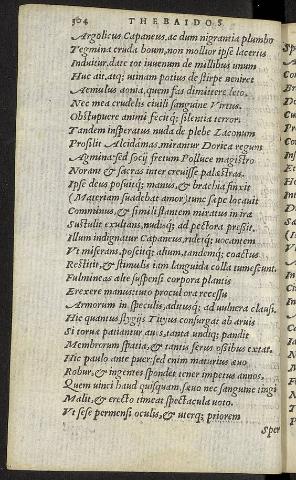 304 THEBAIDOS
Argolicus Capaneus, ac dum nigrantia plumbo
Tegmina cruda boum, non mollior ipse lacertis
Induitur, date tot iuuenum de millibus unum
Huc ait, atq; utinam potius de stirpe ueniret
Aemulus aonia, quem fas dimittere leto,
Nec mea crudelis ciuili sanguine Virtus.
Obstupuere animi fecitq; silentia terror:
Tandem insperatus nuda de plebe Laconum
Prosilit Alcidamas, mirantur Dorica regum
Agmina, sed socij fretum Polluce magistro
Norant & sacras inter creuisse palæstras.
Ipse deus positq; manus, & brachia finxit
(Materiam suadebat amor) tunc sæpe locauit
Comminus, & simili stantem miratus in ira
Sustulit exultans, nudumq; ad pectora pressit.
Illum indignatur Capaneus, ridetq; uocantem
Vt miserans, poscitq; alium, tandemq; coactus
Restitit, & stimulis iam languida colla tumescunt.
Fulmineas alte suspensi corpora plantis
Erexere manus: tuto procul ora recessu
Armorum in speculis, aditusq; ad uulnera clausi.
Hic quantus stygijs Tityus consurgat ab aruis
Si toruæ patiantur aues, tanta undiq; pandit
Membrorum spatia, & tantis ferus ossibus extat.
Hic paulo ante puer: sed enim maturius æuo
Robur, & ingentes spondet tener impetus annos,
Quem uinci haud quisquam, sæuo nec sanguine tingi
Malit, & erecto timeat spectacula uoto.
Vt sese permensi oculis, & uterq; priorem
Sper